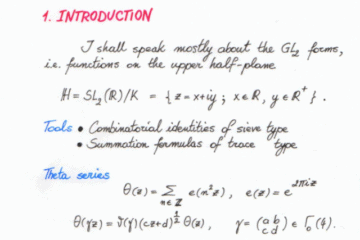 1. INTRODUCTION
I shall speak mostly about the GL₂ forms,
i.e. functions on the upper half-plane
H = SL₂(R)/K = { z = x+iy ; x ∈ R, y ∈ R⁺ } .
Tools • Combinatorial identities of sieve type
• Summation formulas of trace type
Theta series
θ(z) = Σ_{n∈Z} e(n²z) , e(z) = e^{2πiz}
θ(γz) = ϑ(γ)(cz+d)^{1/2} θ(z) , γ = (a b / c d) ∈ Γ₀(4).